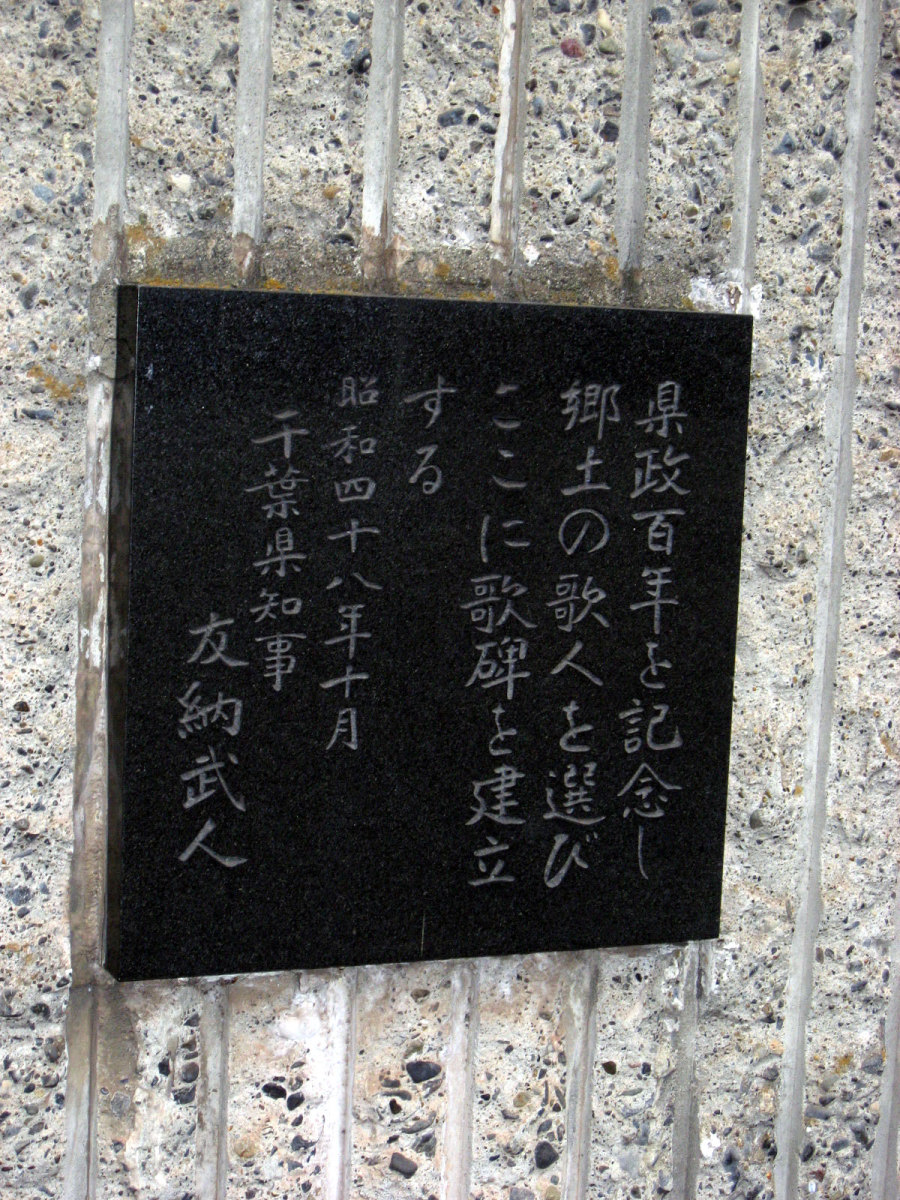 県政百年を記念し
郷土の歌人を選び
ここに歌碑を建立
する
昭和四十八年十月
千葉県知事
友納武人